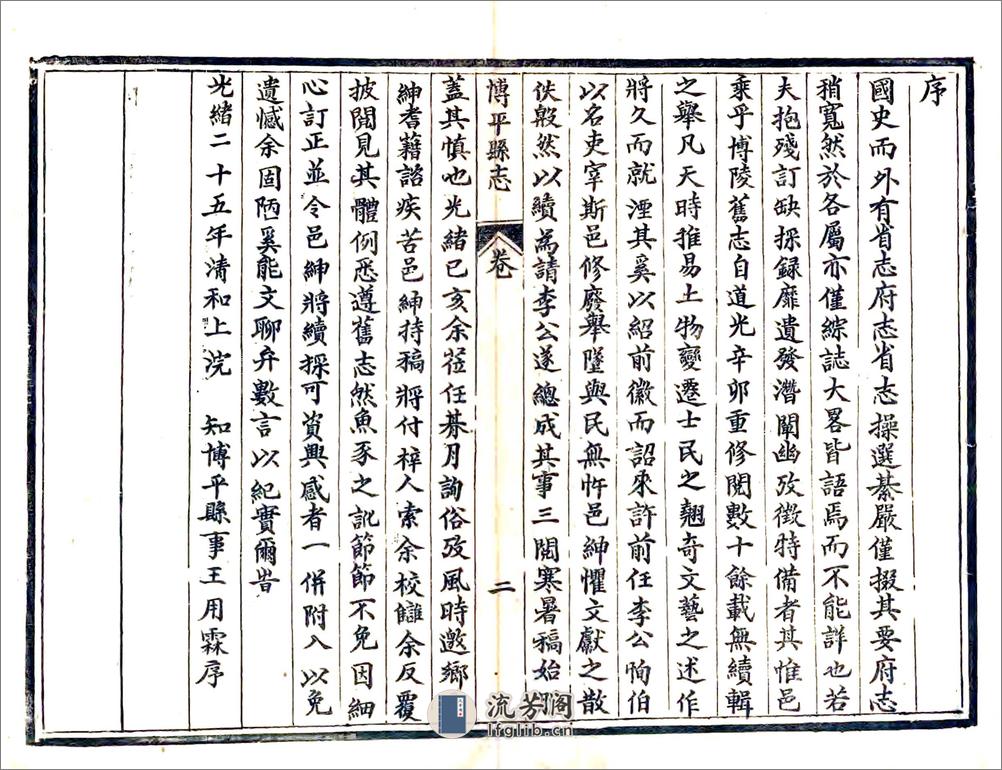 序
國史而外有省志府志省志操選綦嚴僅掇其要府志
稍寬然於各屬亦僅綜誌大畧皆語焉而不能詳也若
夫抱殘訂缺採録靡遺發潛闡幽攷徵特備者其惟邑
乘乎博陵舊志自道光辛卯重修閱數十餘載無續輯
之舉凡天時推易土物變遷士民之翹奇文藝之述作
將久而就湮其奚以紹前徽而詔來許前任李公恂伯
以名吏宰斯邑修廢舉墜與民無忤邑紳懼文獻之散
佚殷然以續為請李公遂總成其事三閱寒暑稿始
博平縣志
卷
二
蓋其慎也光緒己亥余莅任朞月詢俗攷風時邀鄉
紳耆藉諮疾苦邑紳持稿將付梓人索余校讎余反覆
披閱見其體例悉遵舊志然魚豕之訛節節不免因細
心訂正並令邑紳將續採可資興感者一併附入以免
遺憾余固陋奚能文聊弁數言以紀實爾旹
光緒二十五年清和上浣 知博平縣事王用霖序
流芳阁
lfglib.cn